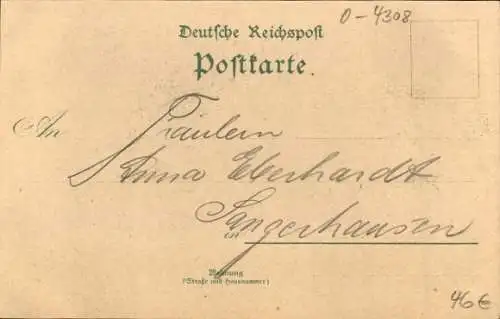 0-4308
Deutsche Reichspost
Postkarte.
An Fräulein
Anna Eberhardt
Sangerhausen
in
Wohnung
(Straße und Hausnummer)
46€